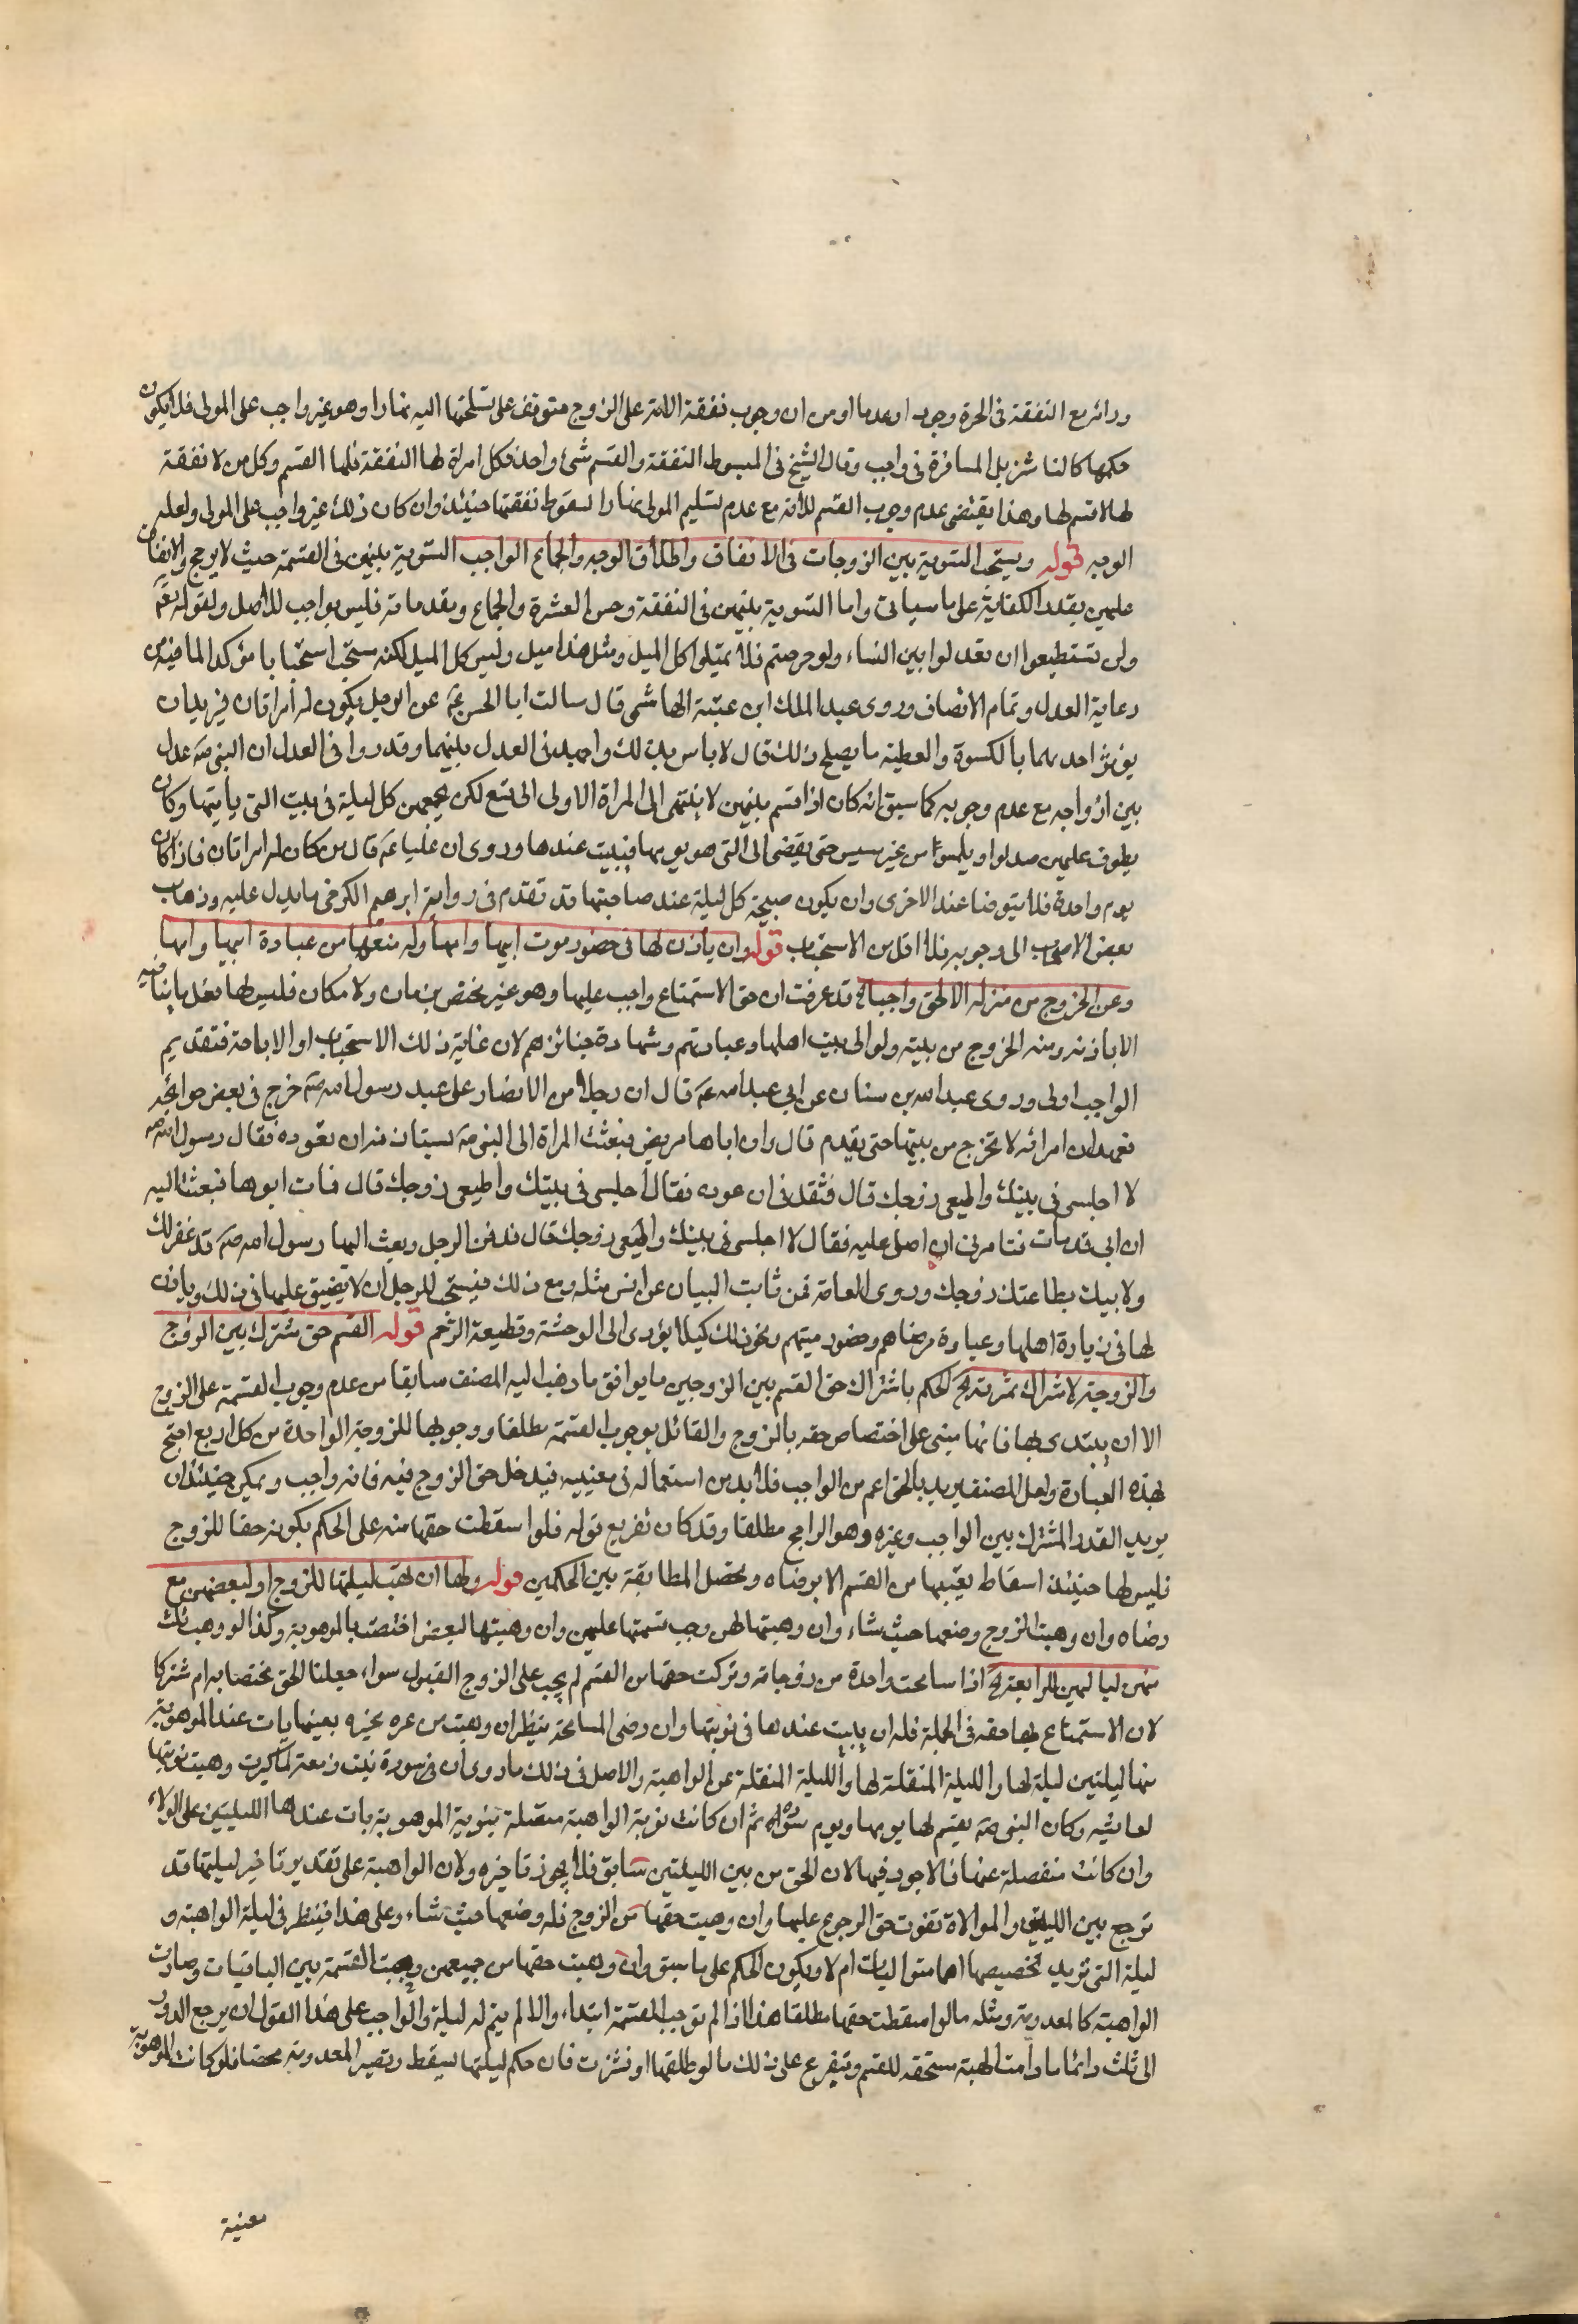 ودائر مع النفقة فى الحرة وجوبا وعدما ومن ان وجوب نفقة الامة على الزوج متوقف على تسليمها اليه نهارا وهو غير واجب على المولى فلا يكون
حكمها كالناشز بل المسافرة فى واجب وقال الشيخ فى المبسوط النفقة والقسم شئ واحد فكل امراة لها النفقة فلها القسم وكل من لا نفقة
لها لا قسم لها وهذا يقتضى عدم وجوب القسم للامة مع عدم تسليم المولى نهارا لسقوط نفقتها حينئذ وان كان ذلك غير واجب على المولى ولعله
الوجه قوله ويستحب التسوية بين الزوجات فى الانفاق واطلاق الوجه والجماع الواجب التسوية بينهن فى القسمة حيث لا يرجح والانفاق
عليهن بقدر الكفاية على ما سياتى واما التسوية بينهن فى النفقة وحسن العشرة والجماع ومقدماته فليس بواجب للاصل ولقوله تعم
ولن تستطيعوا ان تعدلوا بين النساء ولو حرصتم فلا تميلوا كل الميل ومثل هذا ميل وليس كل الميل لكنه مستحب استحبابا مؤكدا لما فيه من
رعاية العدل وتمام الانصاف وروى عبد الملك ابن عتبة الهاشمى قال سالت ابا الحسن عم عن الرجل يكون له امراتان فيريد ان
يؤثر احديهما بالكسوة والعطية ما يصلح ذلك قال لا باس بذلك واجهد فى العدل بينهما وقد روا فى العدل ان النبى صم عدل
بين ازواجه مع عدم وجوبه كما سبق انه كان اذا قسم بينهن لا ينتهى الى المراة الاولى الى تسع لكن يجمعهن كل ليلة فى بيت التى ياتيها وكان
يطوف عليهن فيدنوا ويلمس من غير مسيس حتى يفضى الى التى هو يومها فيبيت عندها وروى ان عليا عم قال من كان له امراتان فاذا كان
يوم واحدة فلا يتوضا عند الاخرى وان يكون صبيحة كل ليلة عند صاحبتها قد تقدم فى رواية ابرهيم الكرخى ما يدل عليه وذهاب
بعض الاصحاب الى وجوبه فلا اقل من الاستحباب قوله وان ياذن لها فى حضور موت ابيها وامها وله منعها من عيادة ابيها وامها
وعن الخروج من منزله الا لحق واجب الخ قد عرفت ان حق الاستمتاع واجب عليها وهو غير مختص بزمان ولا مكان فليس لها فعل ما ينافيه
الا باذنه ومنه الخروج من بيته ولو الى بيت اهلها وعيادتهم وشهادة جنائزهم لان غاية ذلك الاستحباب او الاباحة فتقديم
الواجب اولى وروى عبد الله بن سنان عن ابى عبد الله عم قال ان رجلا من الانصار على عهد رسول الله صم خرج فى بعض حوائجه
فعهد الى امراته لا تخرج من بيتها حتى يقدم قال وان اباها مريض فبعثت المراة الى النبى صم تستاذنه ان تعوده فقال رسول الله صم
لا اجلسى فى بيتك واطيعى زوجك قال فثقل فى ان عوده فقال اجلسى فى بيتك واطيعى زوجك قال فمات ابوها فبعثت اليه
ان ابى قد مات فتامرنى ان اصلى عليه فقال لا اجلسى فى بيتك واطيعى زوجك قال فدفن الرجل وبعث اليها رسول الله صم قد غفر لك
ولابيك بطاعتك زوجك وروى العامة عن ثابت البيان عن انس مثله ومع ذلك فيستحب للرجل ان لا يضيق عليها فى ذلك وياذن
لها فى زيادة اهلها وعيادة مرضاهم وحضور ميتهم ونحو ذلك كيلا يؤدى الى الوحشة وقطيعة الرحم قوله القسم حق مشترك بين الزوج
والزوجة لاشتراك ثمرته الخ الحكم باشتراك حق القسم بين الزوجين ما يوافق ما ذهب اليه المصنف سابقا من عدم وجوب القسمة على الزوج
الا ان يبتدى بها فانها مبنى على اختصاص حقه بالزوج والقائل بوجوب القسمة مطلقا ووجوبها للزوجة الواحدة من كل اربع احتج
بهذه العبارة ولعل المصنف يريد بالحق اعم من الواجب فلا بد من استعماله فى معنييه فيدخل حق الزوج فيه فانه واجب ويمكن حينئذ ان
يريد القدر المشترك بين الواجب وغيره وهو الراجح مطلقا وقد كان تفريع قوله فلو اسقطت حقها منه على الحكم بكونه حقا للزوج
فليس لها حينئذ اسقاط نصيبها من القسم الا برضاه وتحصل المطابقة بين الحكمين قوله ولها ان تهب ليلتها للزوج او لبعضهن مع
رضاه وان وهبت للزوج وضعها حيث شاء وان وهبتها لهن وجب قسمتها عليهن وان وهبتها لبعض اختصت بالموهوبة وكذا لو وهب ثلث
منهن لياليهن للرابعة الخ اذا سامحت واحدة من زوجاته وتركت حقها من القسم لم يجب على الزوج القبول سواء جعلنا الحق مختصا به ام مشتركا
لان الاستمتاع بها حقه فى الجملة فله ان يبيت عندها فى نوبتها وان رضى المسامحة ينظر ان وهبت من غيره بعينها بات عند الموهوبة
منها ليلتين ليلة لها والليلة المنقلة لها والليلة المنقلة عن الواهبة والاصل فى ذلك ما روى ان سورة بنت زمعة لما كبرت وهبت نوبتها
لعائشه وكان النبى صم يقسم لها يومها ويوم سوده ثم ان كانت نوبة الواهبة متصلة بنوبة الموهوبة بات عندها الليلتين على الولاء
وان كانت منفصلة عنها فالاجود فيها لان الحق من بين الليلتين سابق فلا يجوز تاخيره ولان الواهبة على تقدير تاخير ليلتها قد
ترجع بين الليلتين والموالاة تفوت حق الرجوع عليها وان وهبت حقها من الزوج فله وضعها حيث شاء وعلى هذا فينظر فى ليلة الواهبة و
ليلة التى تريد تخصيصها اهما متواليات ام لا ويكون الحكم على ما سبق وان وهبت حقها من جميعهن وجبت القسمة بين الباقيات وصارت
الواهبة كالمعدومة ومثله ما لو اسقطت حقها مطلقا هذا اذا لم توجب القسمة ابتداء والا لم يتم له ليلة والواجب على هذا القول ان يرجع الدور
الى ثلث دائما ما دامت الهبة مستحقه للقسم ويتفرع على ذلك ما لو طلقها او نشزت فان حكم ليلتها يسقط وتصير المعدومة محضا فلو كانت الموهوبة
معنية